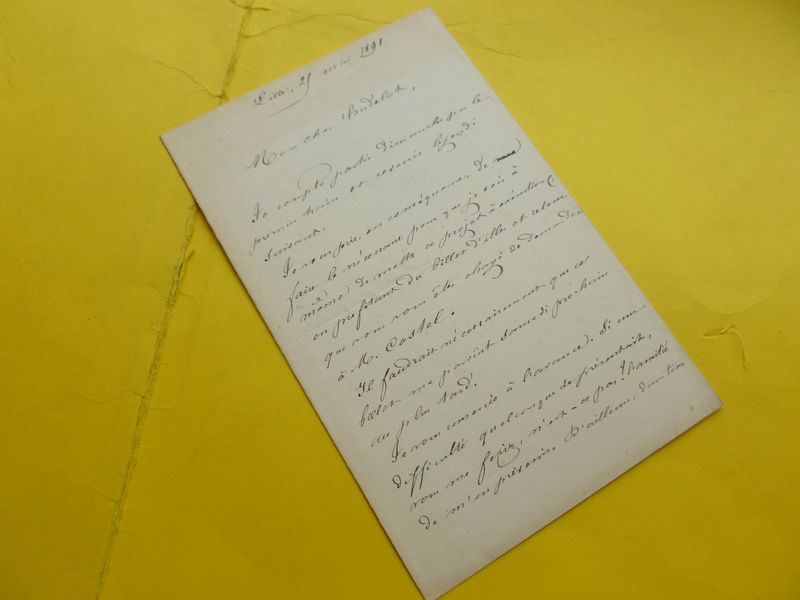 Lille, 25 mai 1891.
Mon cher Hudelot,
Je compte partir dimanche par le
premier train et revenir le jeudi
suivant.
Je vous prie, en conséquence, de
faire le nécessaire pour que je sois à
même de mettre ce projet à exécution
en profitant du billet d'aller et retour
que vous vous êtes chargé de demander
à M. Castel.
Il faudrait nécessairement que ce
billet me parvint samedi prochain
au plus tard.
Je vous remercie à l'avance. Si une
difficulté quelconque se présentait,
vous me feriez, n'est-ce pas? l'amitié
de m'en prévenir. D'ailleurs, dans tous